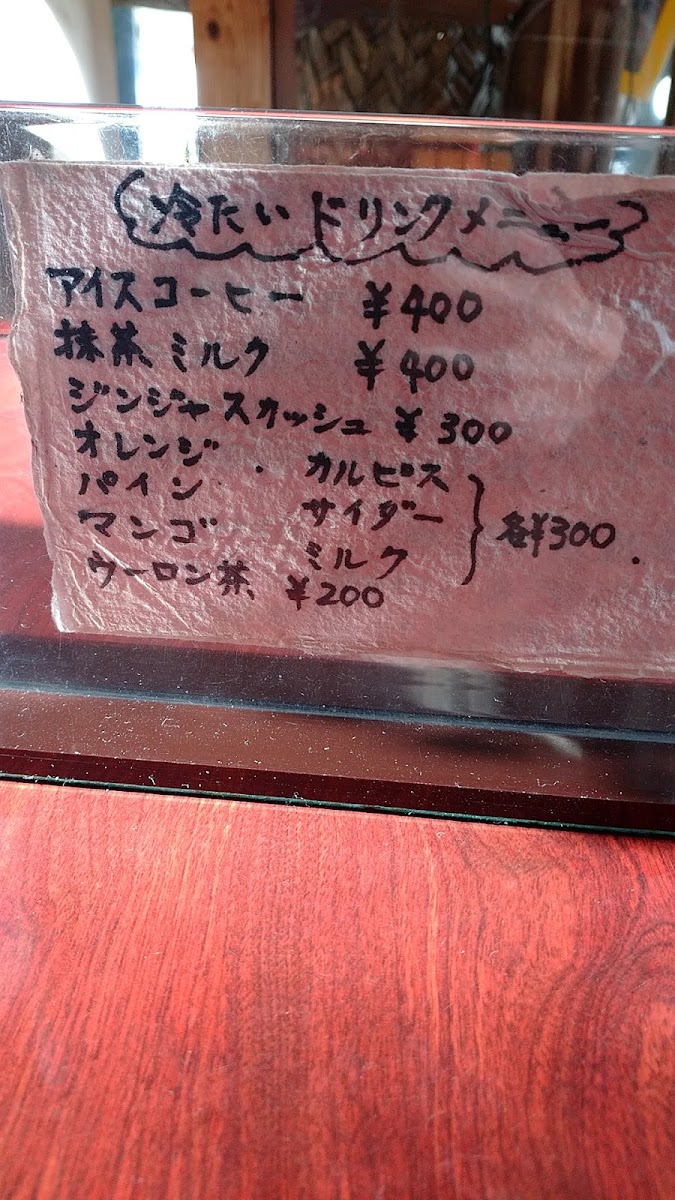 冷たいドリンクメニュー
アイスコーヒー ¥400
抹茶ミルク ¥400
ジンジャスカッシュ ¥300
オレンジ・カルピス
パイン サイダー 各¥300.
マンゴ ミルク
ウーロン茶 ¥200